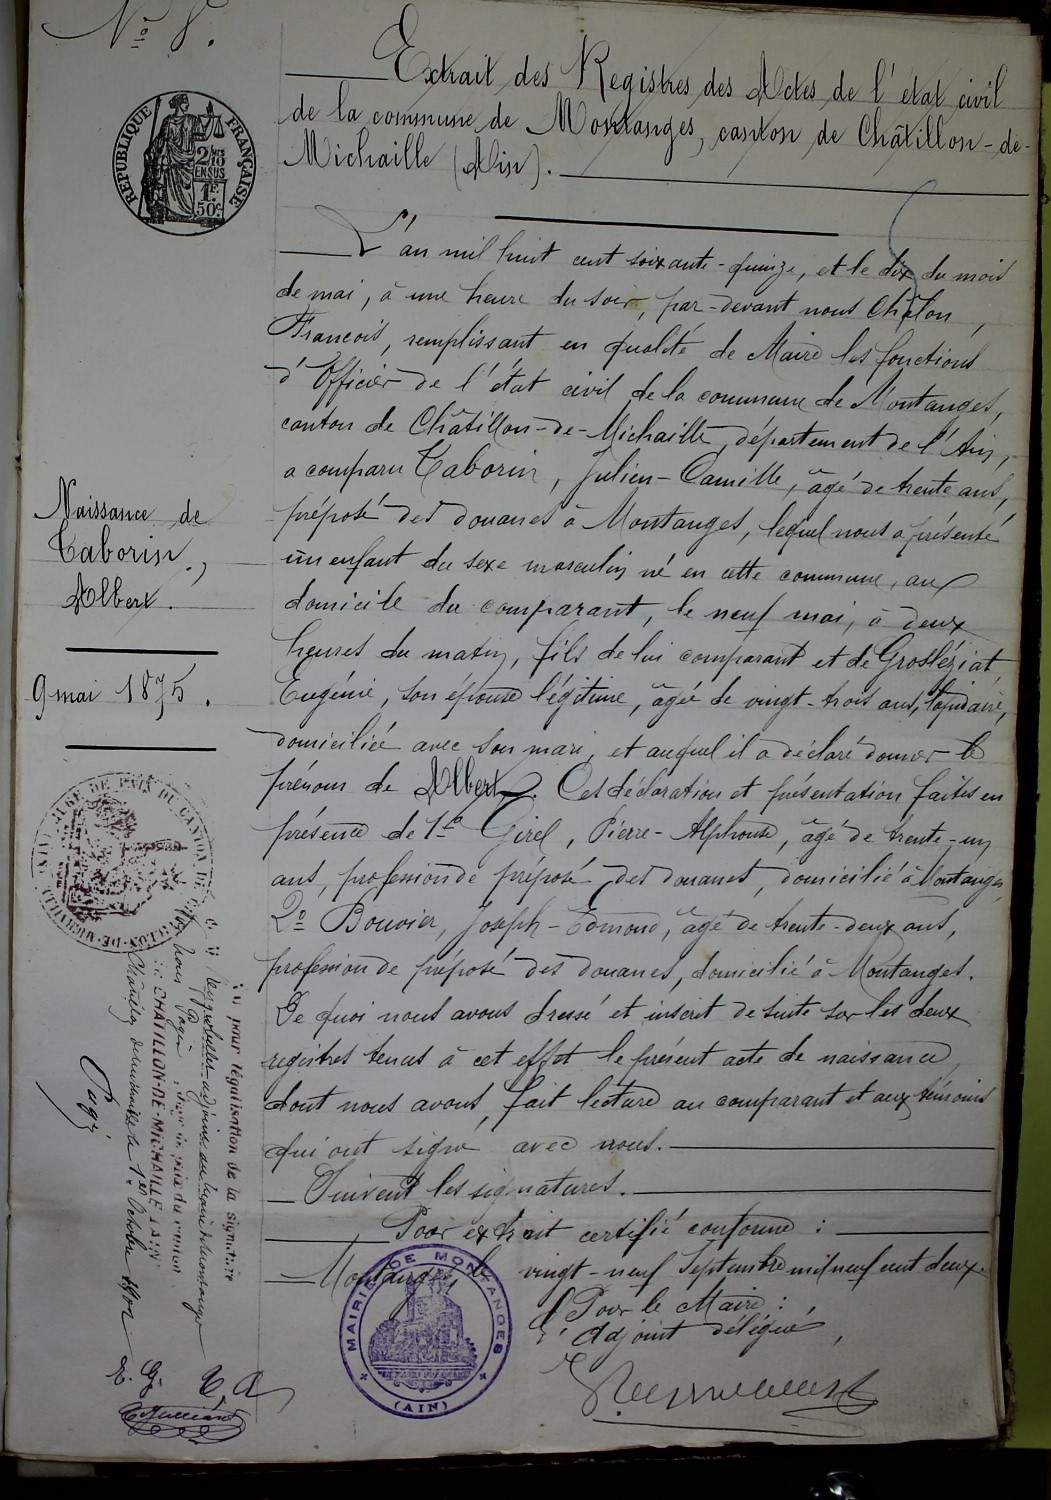 N° 8.
Extrait des Registres des Actes de l'état civil
de la commune de Montanges, canton de Châtillon-de-
Michaille (Ain).
RÉPUBLIQUE FRANÇAISE
2/10
EN SUS
1F.
50c
L'an mil huit cent soixante-quinze, et le dix du mois
de mai, à une heure du soir, par-devant nous Châlon,
François, remplissant en qualité de Maire les fonctions
d'Officier de l'état civil de la commune de Montanges,
canton de Châtillon-de-Michaille, département de l'Ain,
a comparu Taborin, Julien-Camille, âgé de trente ans,
préposé des douanes à Montanges, lequel nous a présenté
un enfant du sexe masculin né en cette commune, au
domicile du comparant, le neuf mai, à deux
heures du matin, fils de lui comparant et de Grosléziat
Eugénie, son épouse légitime, âgée de vingt-trois ans, lapidaire,
domiciliée avec son mari, et auquel il a déclaré donner le
prénom de Albert. Ces déclaration et présentation faites en
présence de 1° Girel, Pierre-Alphonse, âgé de trente-un
ans, profession de préposé des douanes, domicilié à Montanges
2° Bouvier, Joseph-Edmond, âgé de trente-deux ans,
profession de préposé des douanes, domicilié à Montanges.
De quoi nous avons dressé et inscrit de suite sur les deux
registres tenus à cet effet le présent acte de naissance
dont nous avons fait lecture au comparant et aux témoins
qui ont signé avec nous.
Suivent les signatures.
Pour extrait certifié conforme :
Montanges, le vingt-neuf Septembre mil neuf cent deux.
Pour le Maire :
L'Adjoint délégué,
Naissance de
Taborin,
Albert.
9 mai 1875.
MAIRIE DE MONTANGES
(AIN)
Vu pour légalisation de la signature
adjoint au maire de Montanges
Par nous Pagi, Juge de paix du canton
de CHATILLON-DE-MICHAILLE (AIN)
Châtillon de Michaille le 1er Octobre 1902
Pagi